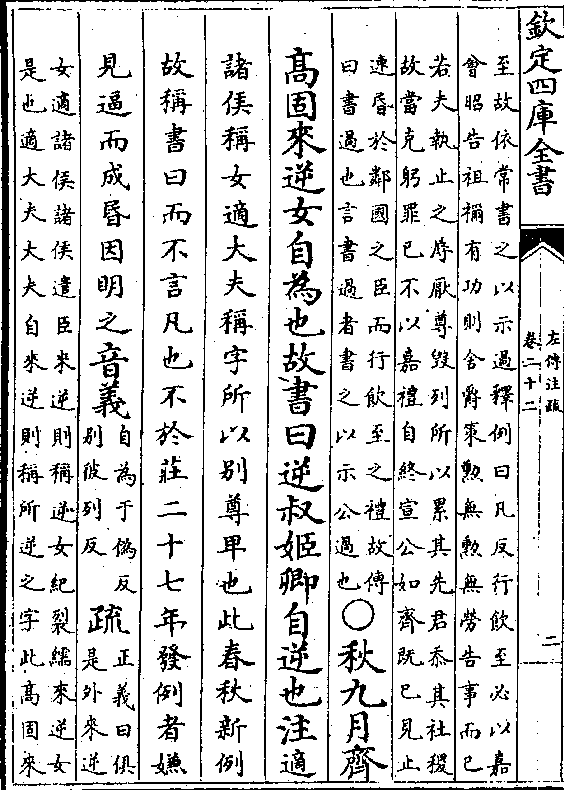 欽定四庫全書
左傳注疏
卷二十二
二
至故依常書之以示過釋例曰凡反行飲至必以嘉
會昭告祖禰有功則舍爵策勲無勲無勞告事而已
若夫執止之辱厭尊毀列所以累其先君忝其社稷
故當克躬罪已不以嘉禮自終宣公如齊既已見止
連昏於鄰國之臣而行飲至之禮故傳
曰書過也言書過者書之以示公過也
〇秋九月齊
高固來逆女自為也故書曰逆叔姬卿自逆也注適
諸侯稱女適大夫稱字所以别尊卑也此春秋新例
故稱書曰而不言凡也不於莊二十七年發例者嫌
見逼而成昏因明之音義
自為于偽反
别彼列反
疏
正義曰俱
是外來逆
女適諸侯諸侯遣臣來逆則稱逆女紀裂繻來逆女
是也適大夫大夫自來逆則稱所逆之字此高固來